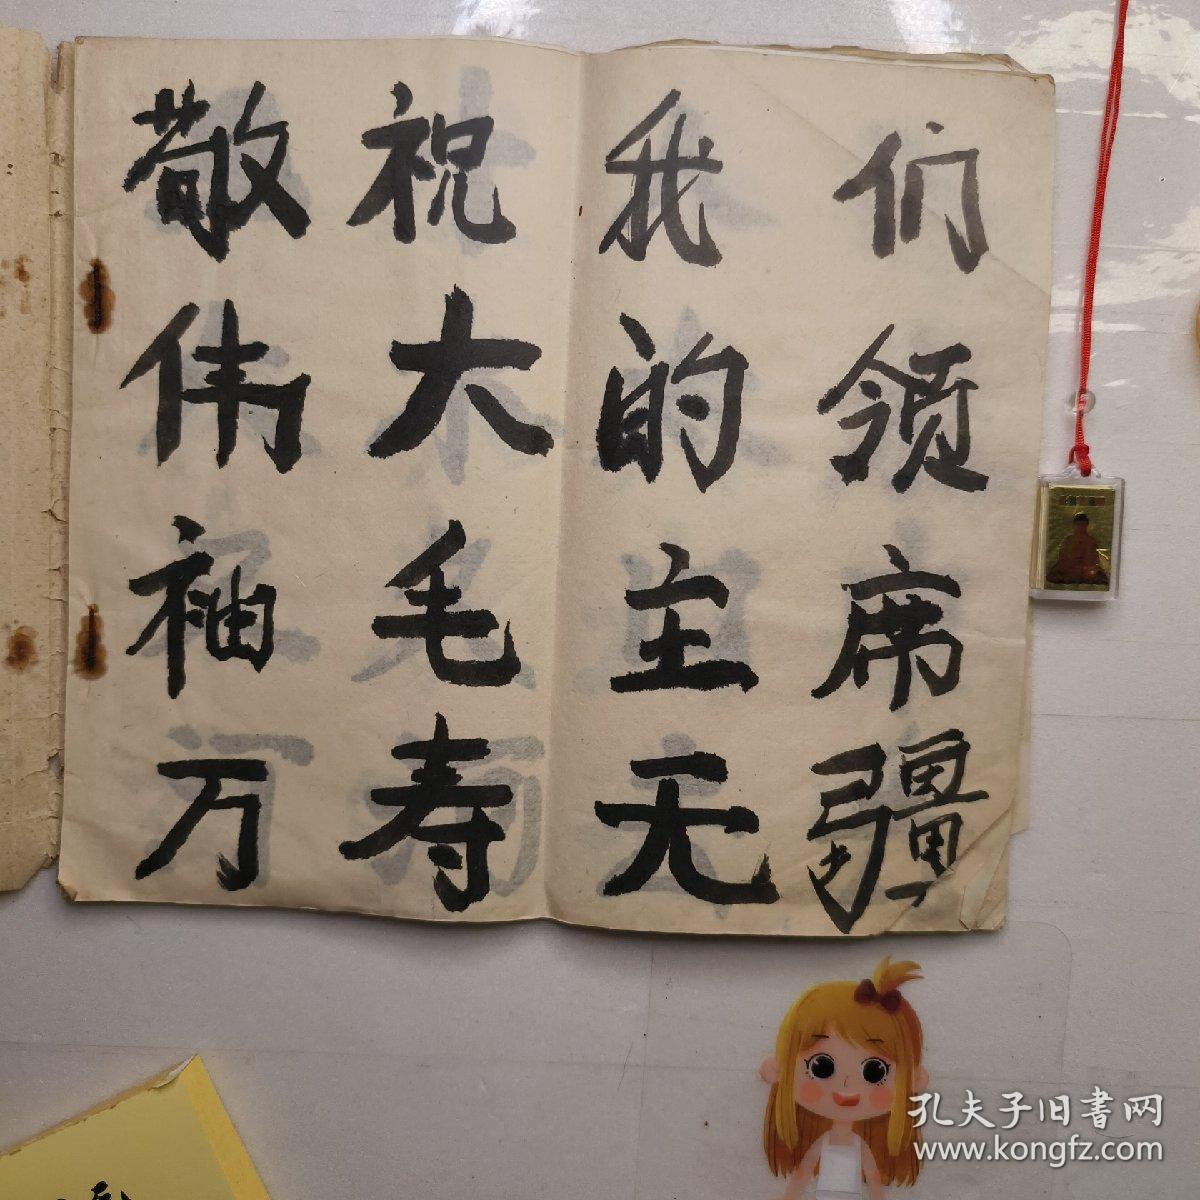 敬祝我们
伟大的领
袖毛主席
万寿无疆
孔夫子旧書网
www.kongfz.com